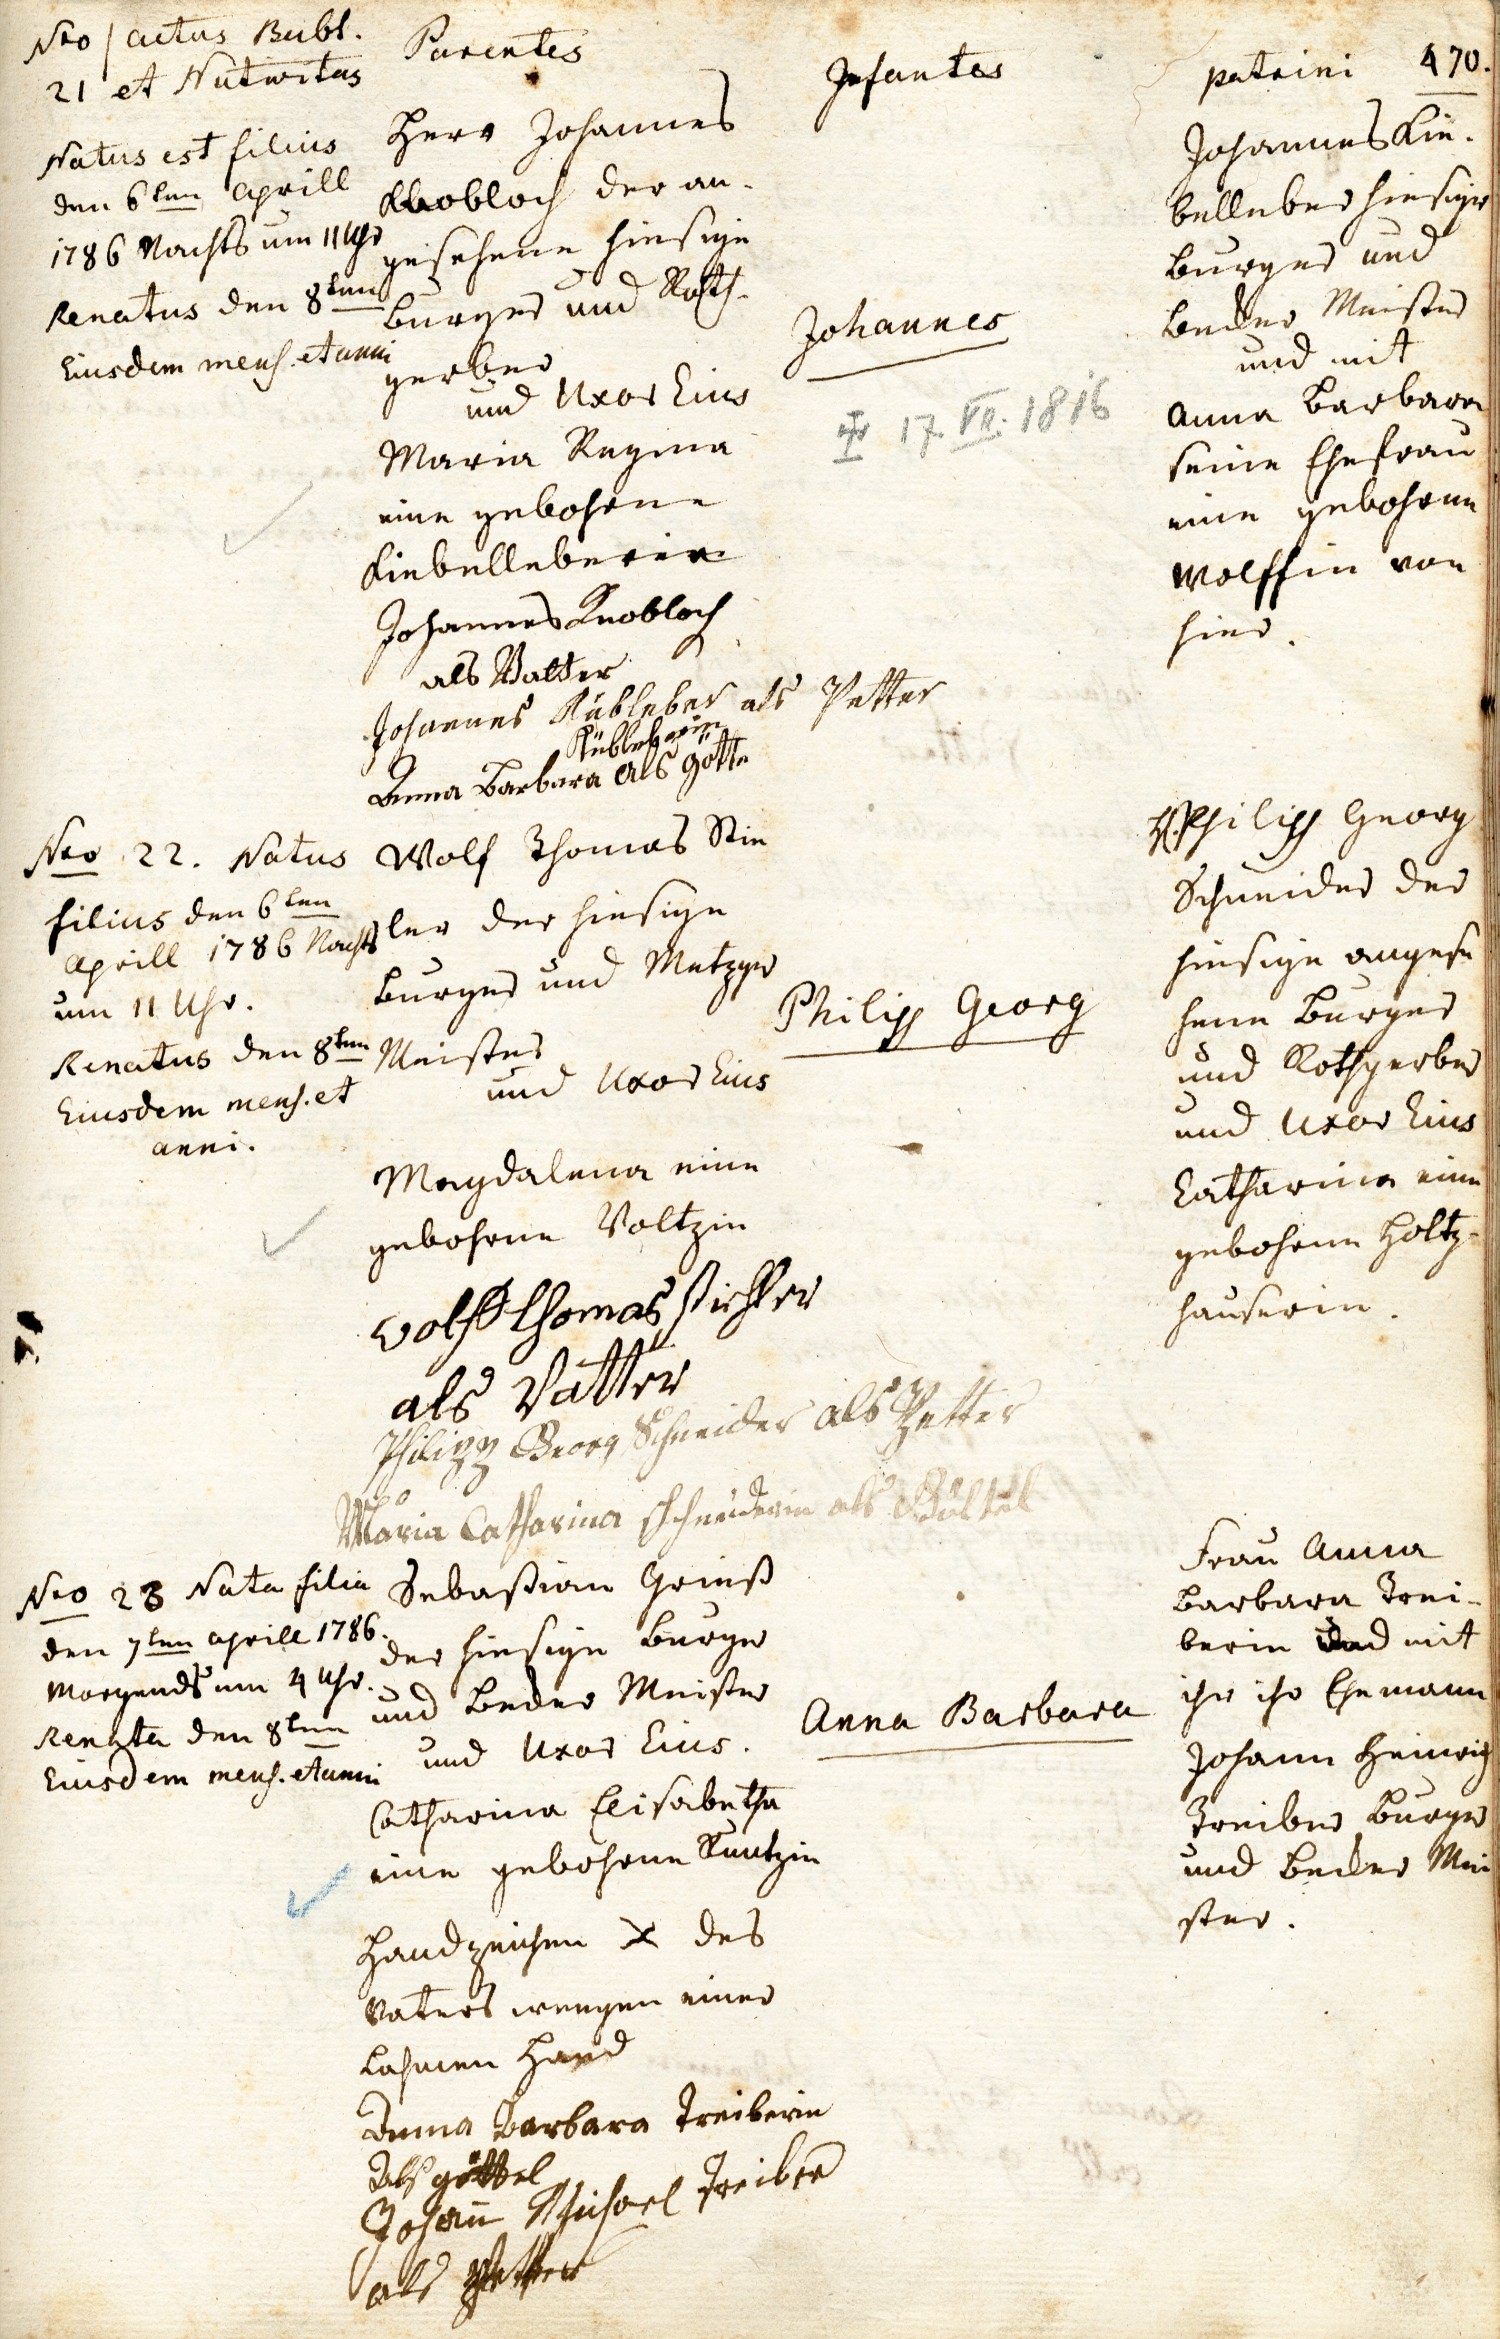 Nro actus Bubl.
21 et Nativitas
Parentes
Infantes
patrini 470.
Natus est filius
den 6ten Aprill
1786 Nachts um 11 Uhr
Renatus den 8ten
Eiusdem mens. et anni
Herr Johannes
Knobloch der an-
gesehene hiesige
Burger und Roth-
gerber
und Uxor Eius
Maria Regina
eine gebohrne
Kiebelleberin
Johannes Knobloch
als Vatter
Johannes Kübleber als Petter
Kübleberin
Anna Barbara als götte
Johannes
17. VII. 1816
Johannes Kie-
belleber hiesiger
Burger und
Becker Meister
und mit
Anna Barbara
seine Ehefrau
eine gebohrne
Wolffin von
hier.
Nro 22. Natus
filius den 6ten
Aprill 1786 Nachts
um 11 Uhr.
Renatus den 8ten
Eiusdem mens. et
anni.
Wolf Thomas Stie
ler der hiesige
Burger und Metzger
Meister
und Uxor Eius
Magdalena eine
gebohrne Voltzin
als Vatter
Philipp Georg Schneider als Petter
Maria Catharina Schneiderin als
Philipp Georg
Philipp Georg
Schneider der
hiesige angese
hene Burger
und Rothgerber
und Uxor Eius
Catharina eine
gebohrne Holtz-
hauserin.
Nro 23 Nata filia
den 7ten Aprill 1786.
Morgends um 4 Uhr.
Renata den 8ten
Eiusdem mens. et anni
Sebastian Grieß
der hiesige Burger
und Becker Meister
und Uxor Eius.
Catharina Elisabetha
eine gebohrne Kuntzin
Handzeichen X des
Vaters wengen einer
Lahmen Hand
Anna Barbara Treiberin
Als göttel
Johann Michael Treiber
als Petter
Anna Barbara
Frau Anna
Barbara Trei-
berin und mit
ihr ihr Ehemann
Johann Heinrich
Treiber Burger
und Becker Mei
ster.